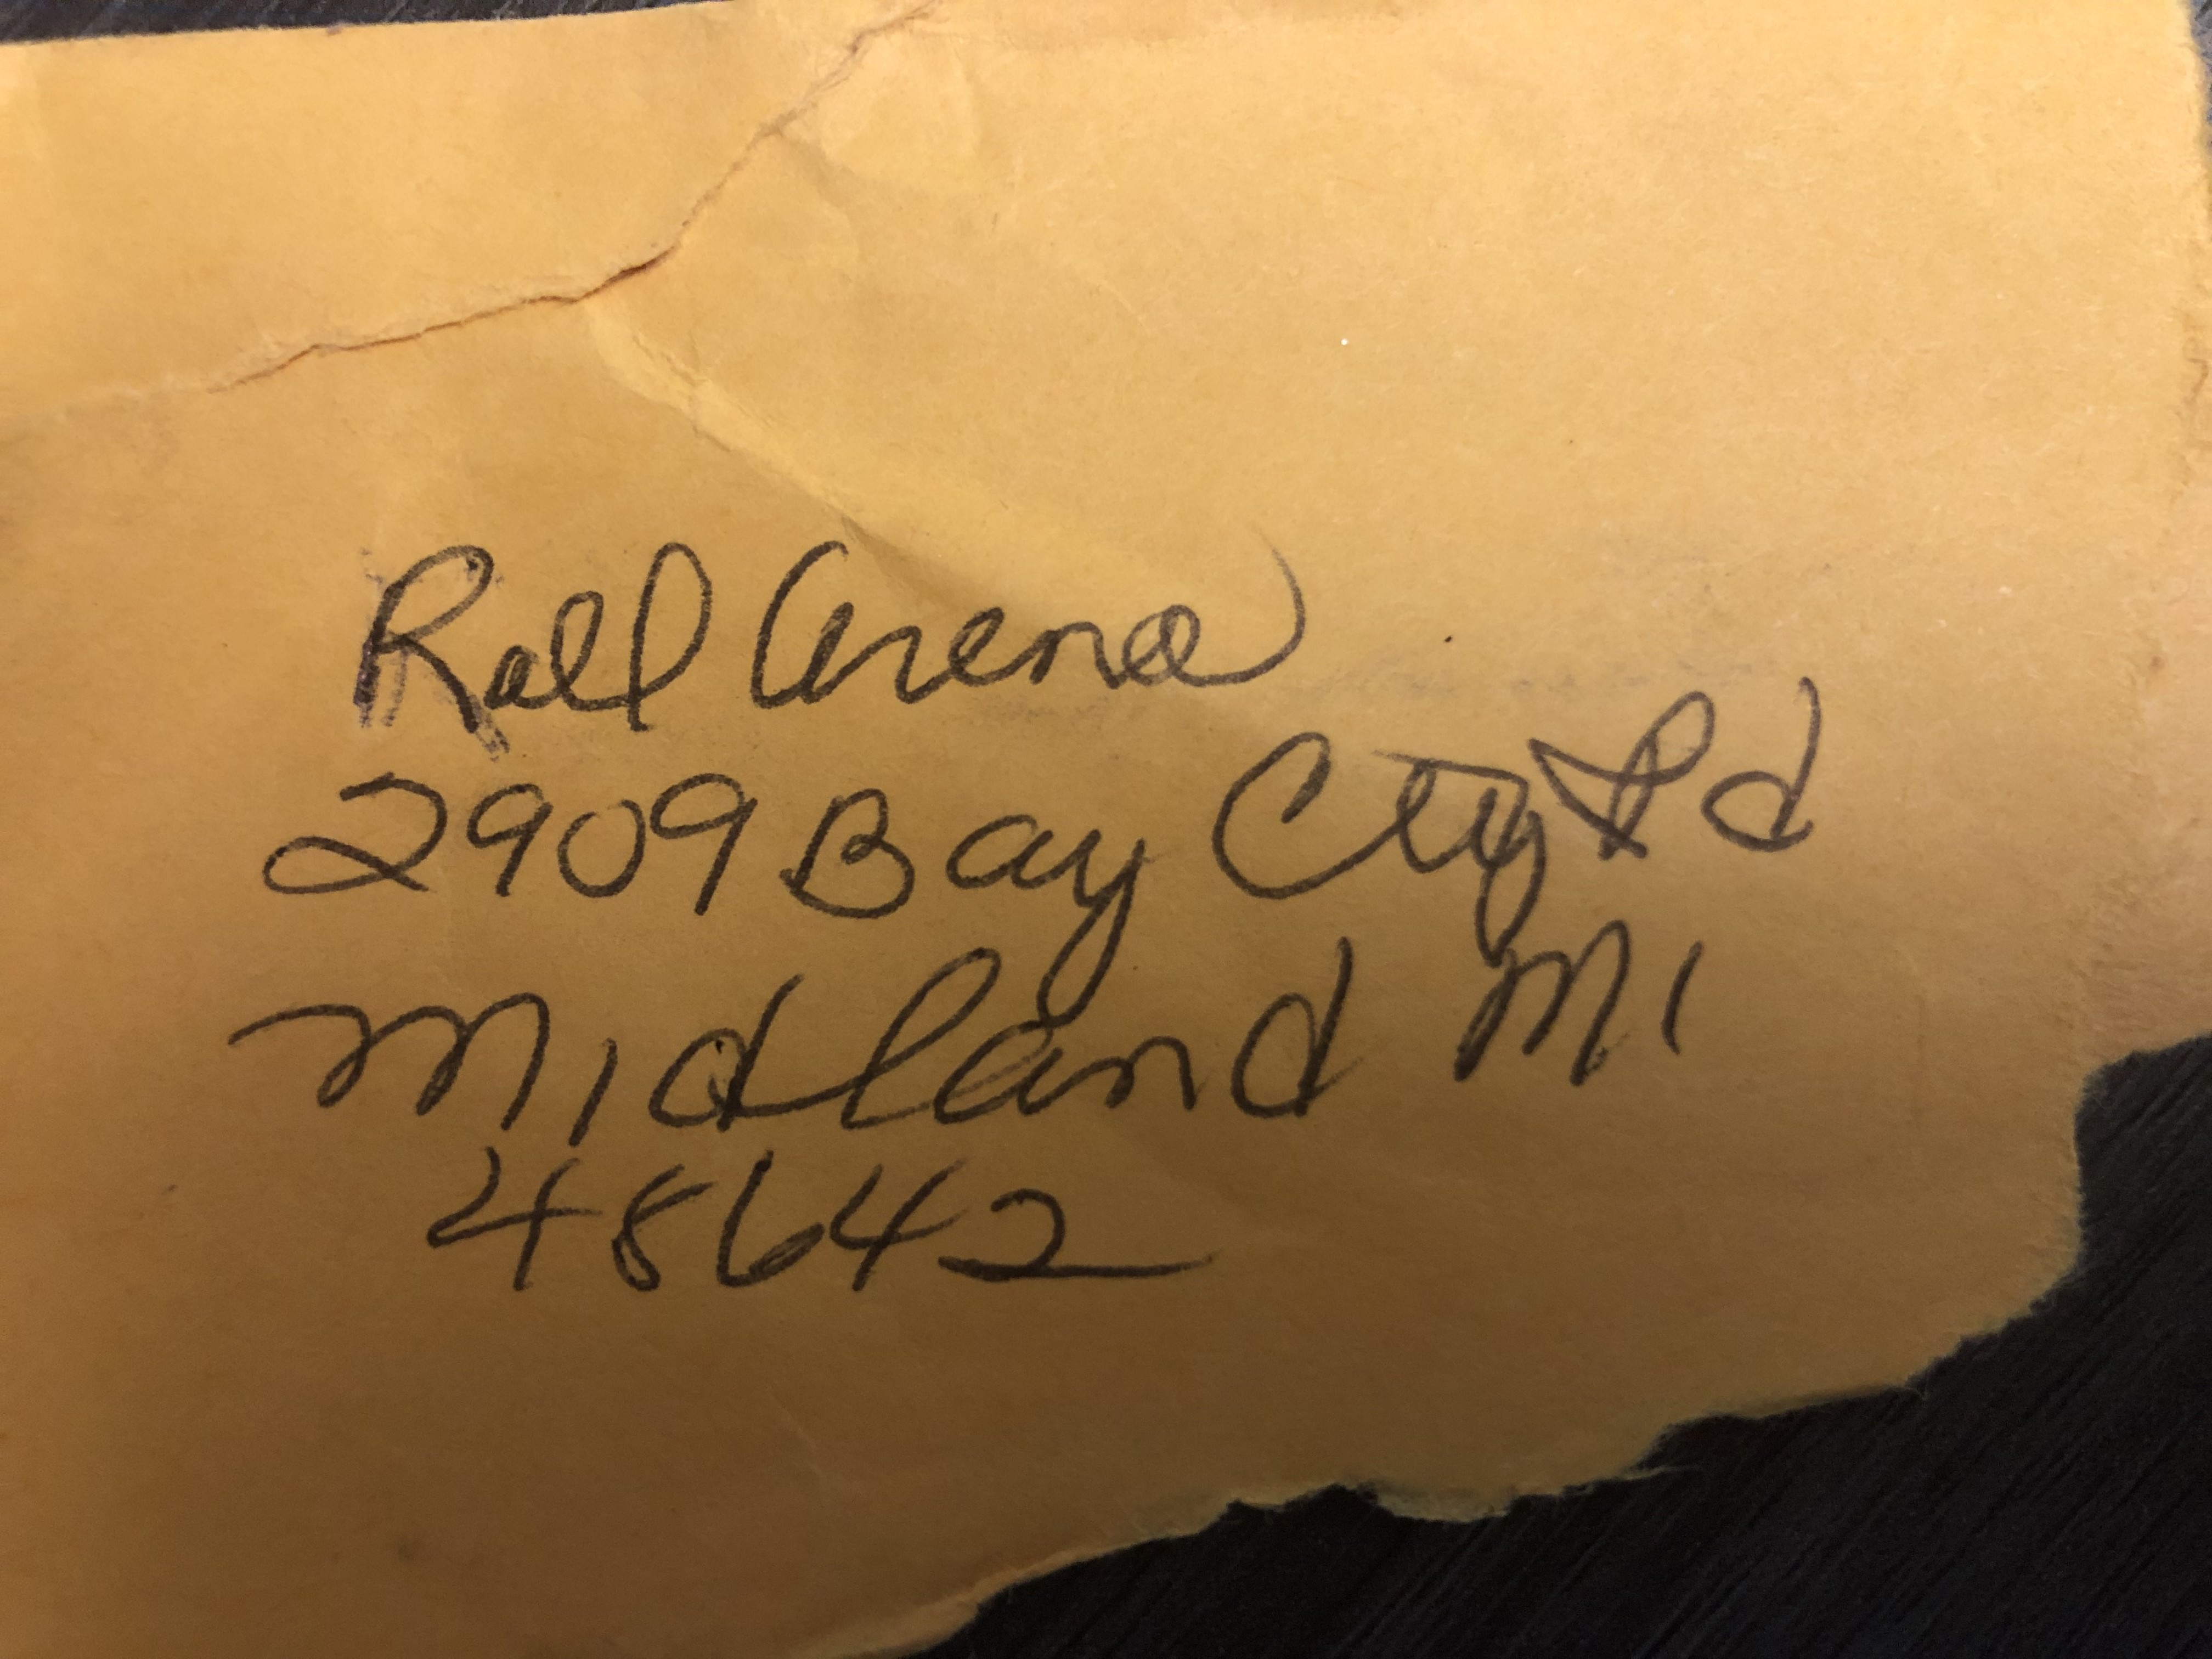 Ralp Arena
2909 Bay City Rd
Midland MI
48642